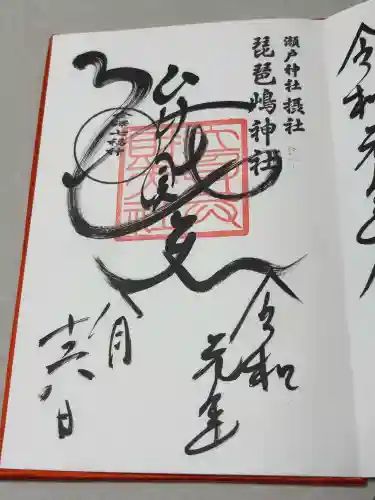 令和元年八
瀬戸神社 摂社
琵琶嶋神社
弁財天
令和
元年
八月
十六日